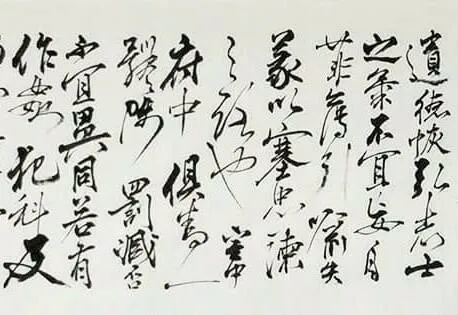 遺德恢弘志士
之氣不宜妄自
菲薄引喻失
義以塞忠諫
之路也宮中
府中俱為一
體陟罰臧否
不宜異同若有
作姦犯科及